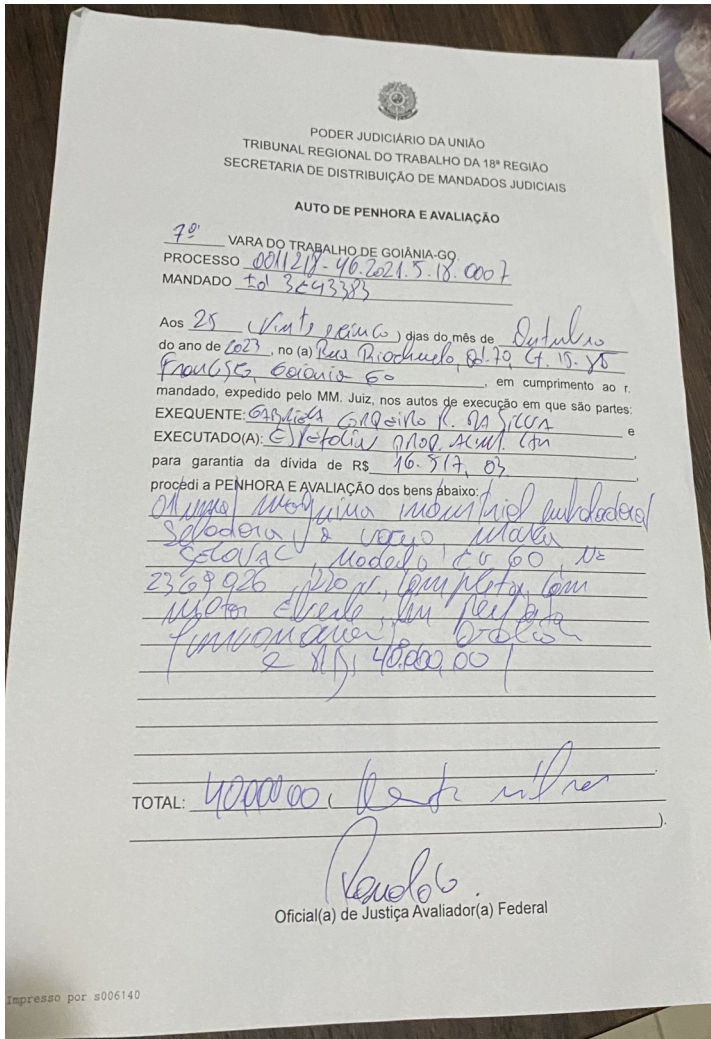 PODER JUDICIÁRIO DA UNIÃO
TRIBUNAL REGIONAL DO TRABALHO DA 18ª REGIÃO
SECRETARIA DE DISTRIBUIÇÃO DE MANDADOS JUDICIAIS
AUTO DE PENHORA E AVALIAÇÃO
7ª VARA DO TRABALHO DE GOIÂNIA-GO.
PROCESSO 0011218-46.2021.5.18.0007
MANDADO 3c43383
Aos 25 (Vinte e cinco) dias do mês de Outubro
do ano de 2023, no (a) Rua Riachuelo, Qd. 70, Lt. 15
Goiânia GO, em cumprimento ao r.
mandado, expedido pelo MM. Juiz, nos autos de execução em que são partes:
EXEQUENTE: DA SILVA e
EXECUTADO(A):
para garantia da dívida de R$ 16.517,03
procedi a PENHORA E AVALIAÇÃO dos bens abaixo:
máquina industrial embaladora
Seladora a vácuo marca
SELOVAC, Modelo CV 60, Nº
2369926, completa, com
motor em perfeito
R$ 40.000,00
TOTAL: 40.000,00 (
).
Oficial(a) de Justiça Avaliador(a) Federal
Impresso por s006140